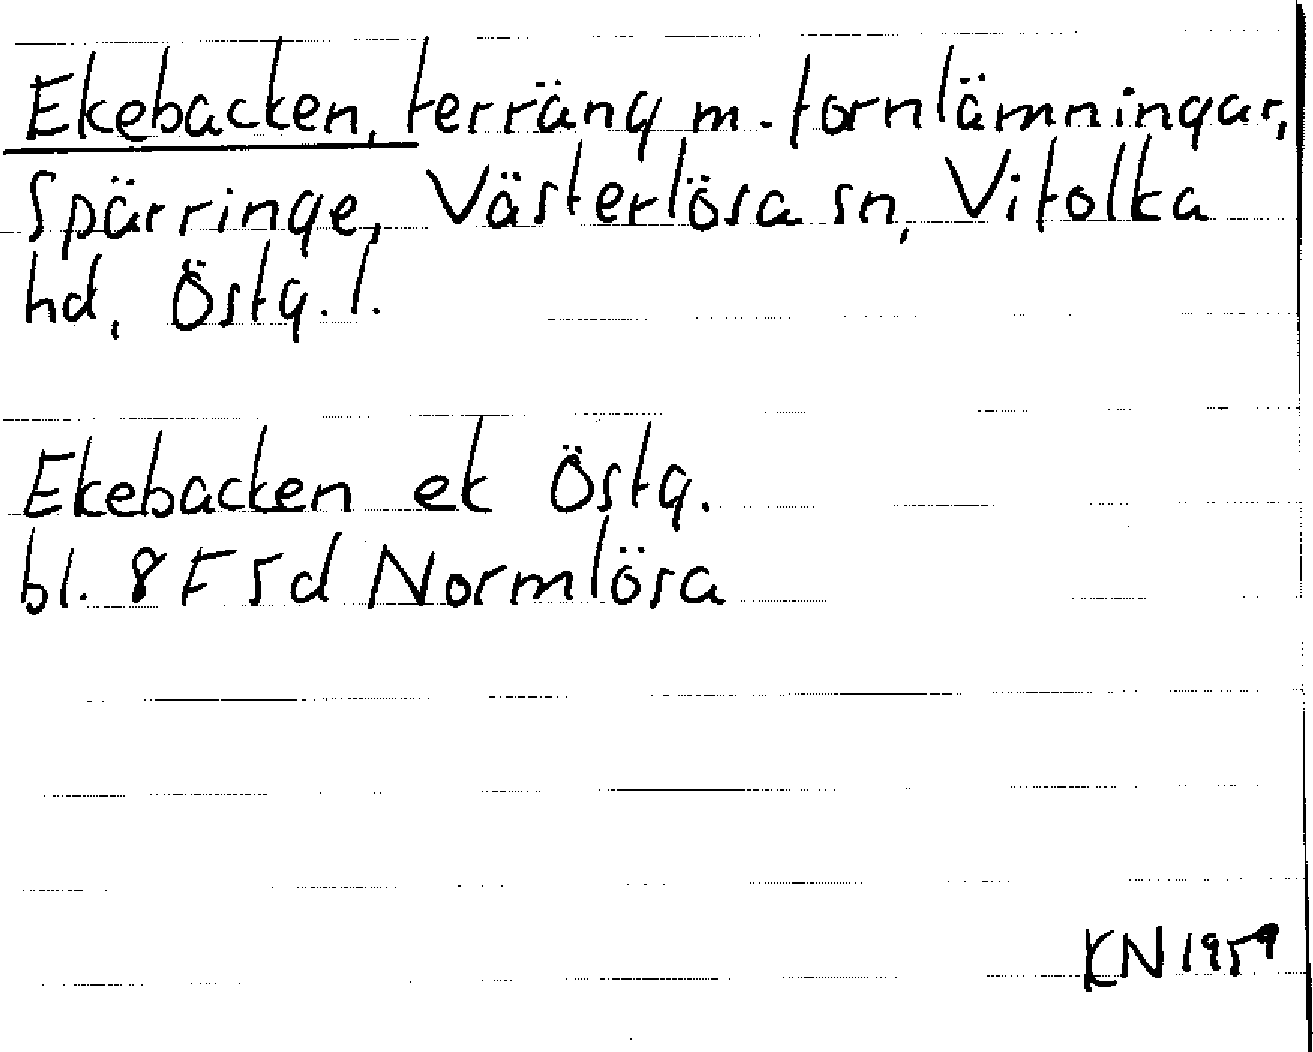 Ekebacken, terräng m. fornlämningar,
Spärringe, Västerlösa sn, Vifolka
hd, Östg. l.
Ekebacken ek Östg.
bl. 8F5d Normlösa
KN 1959